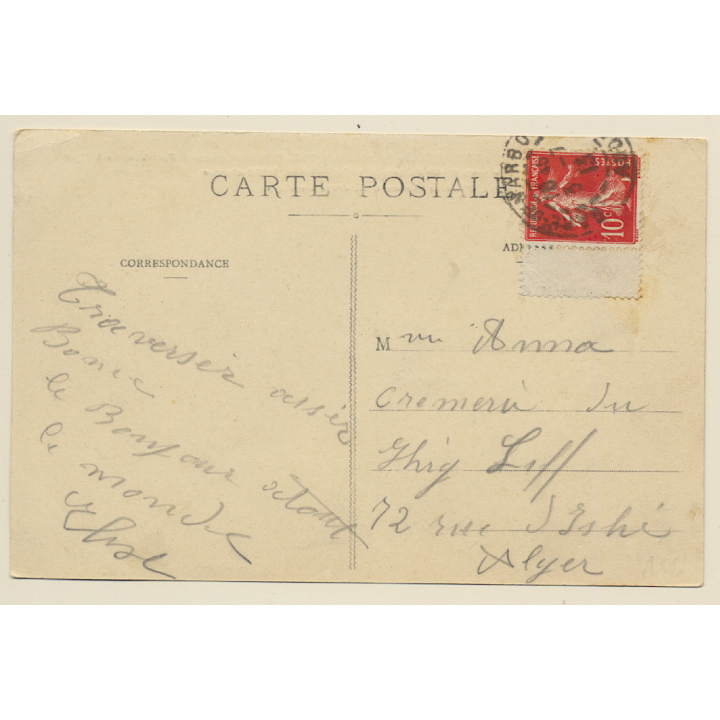 CARTE POSTALE
CORRESPONDANCE
Traversér assér
Bonne
le Bonjour a tout
le monde
ADRESSE
Mme Anna
Cremerie du
72 rue d'Isly
Alger
REPUBLIQUE FRANÇAISE
POSTES
10c